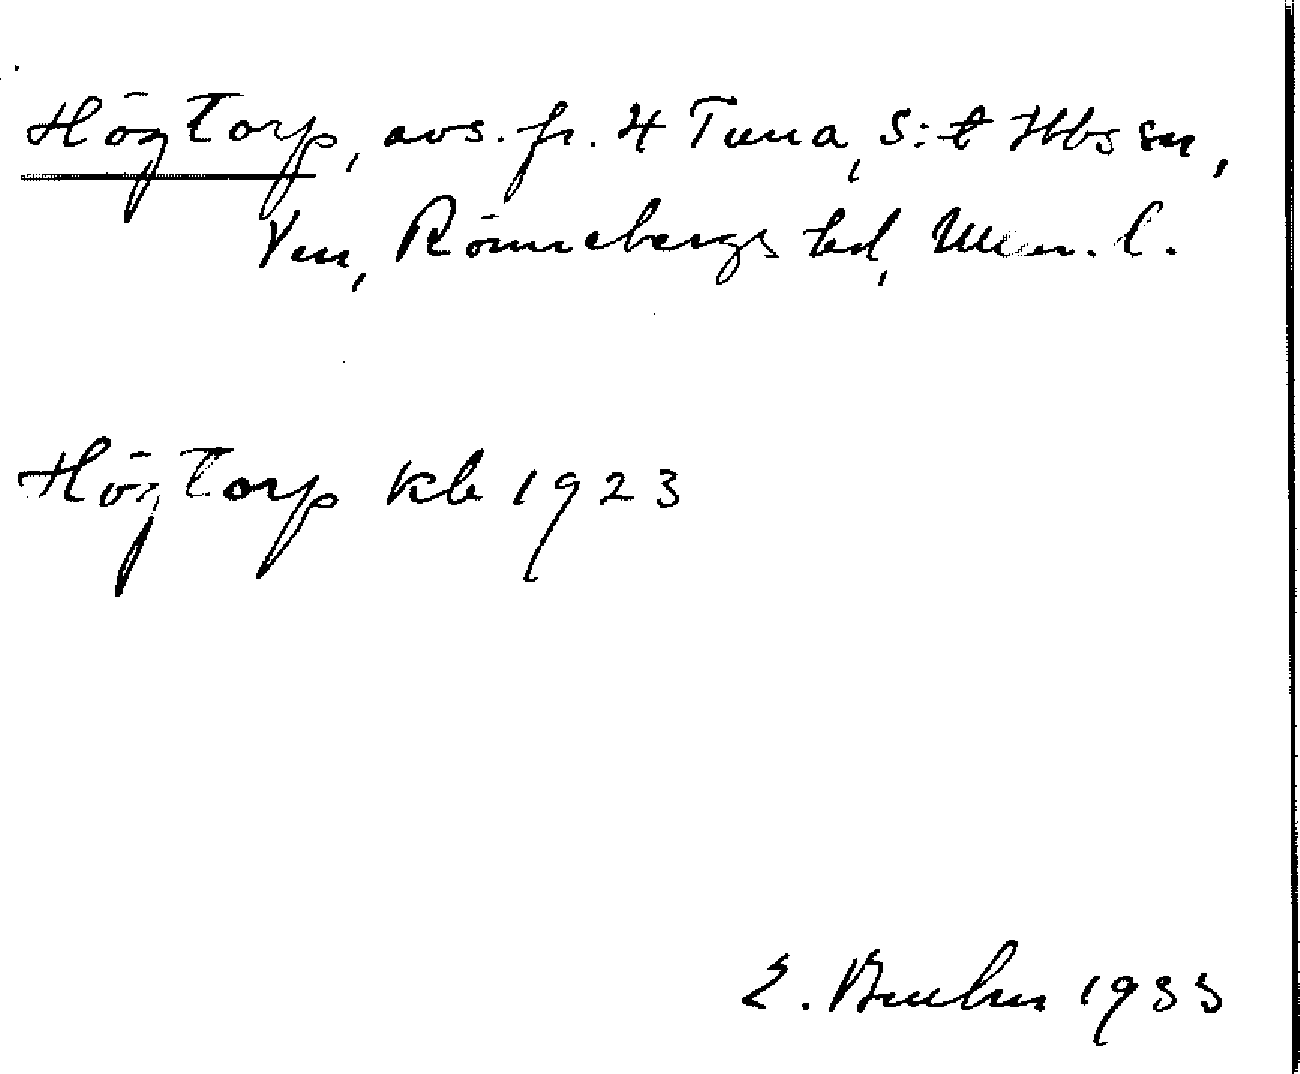 Högtorp, avs. fr. 4 Tuna, S:t Ibs sn,
Ven, Rönnebergs hd, Mlm. l.
Högtorp kb 1923
E. Bruhn 1933